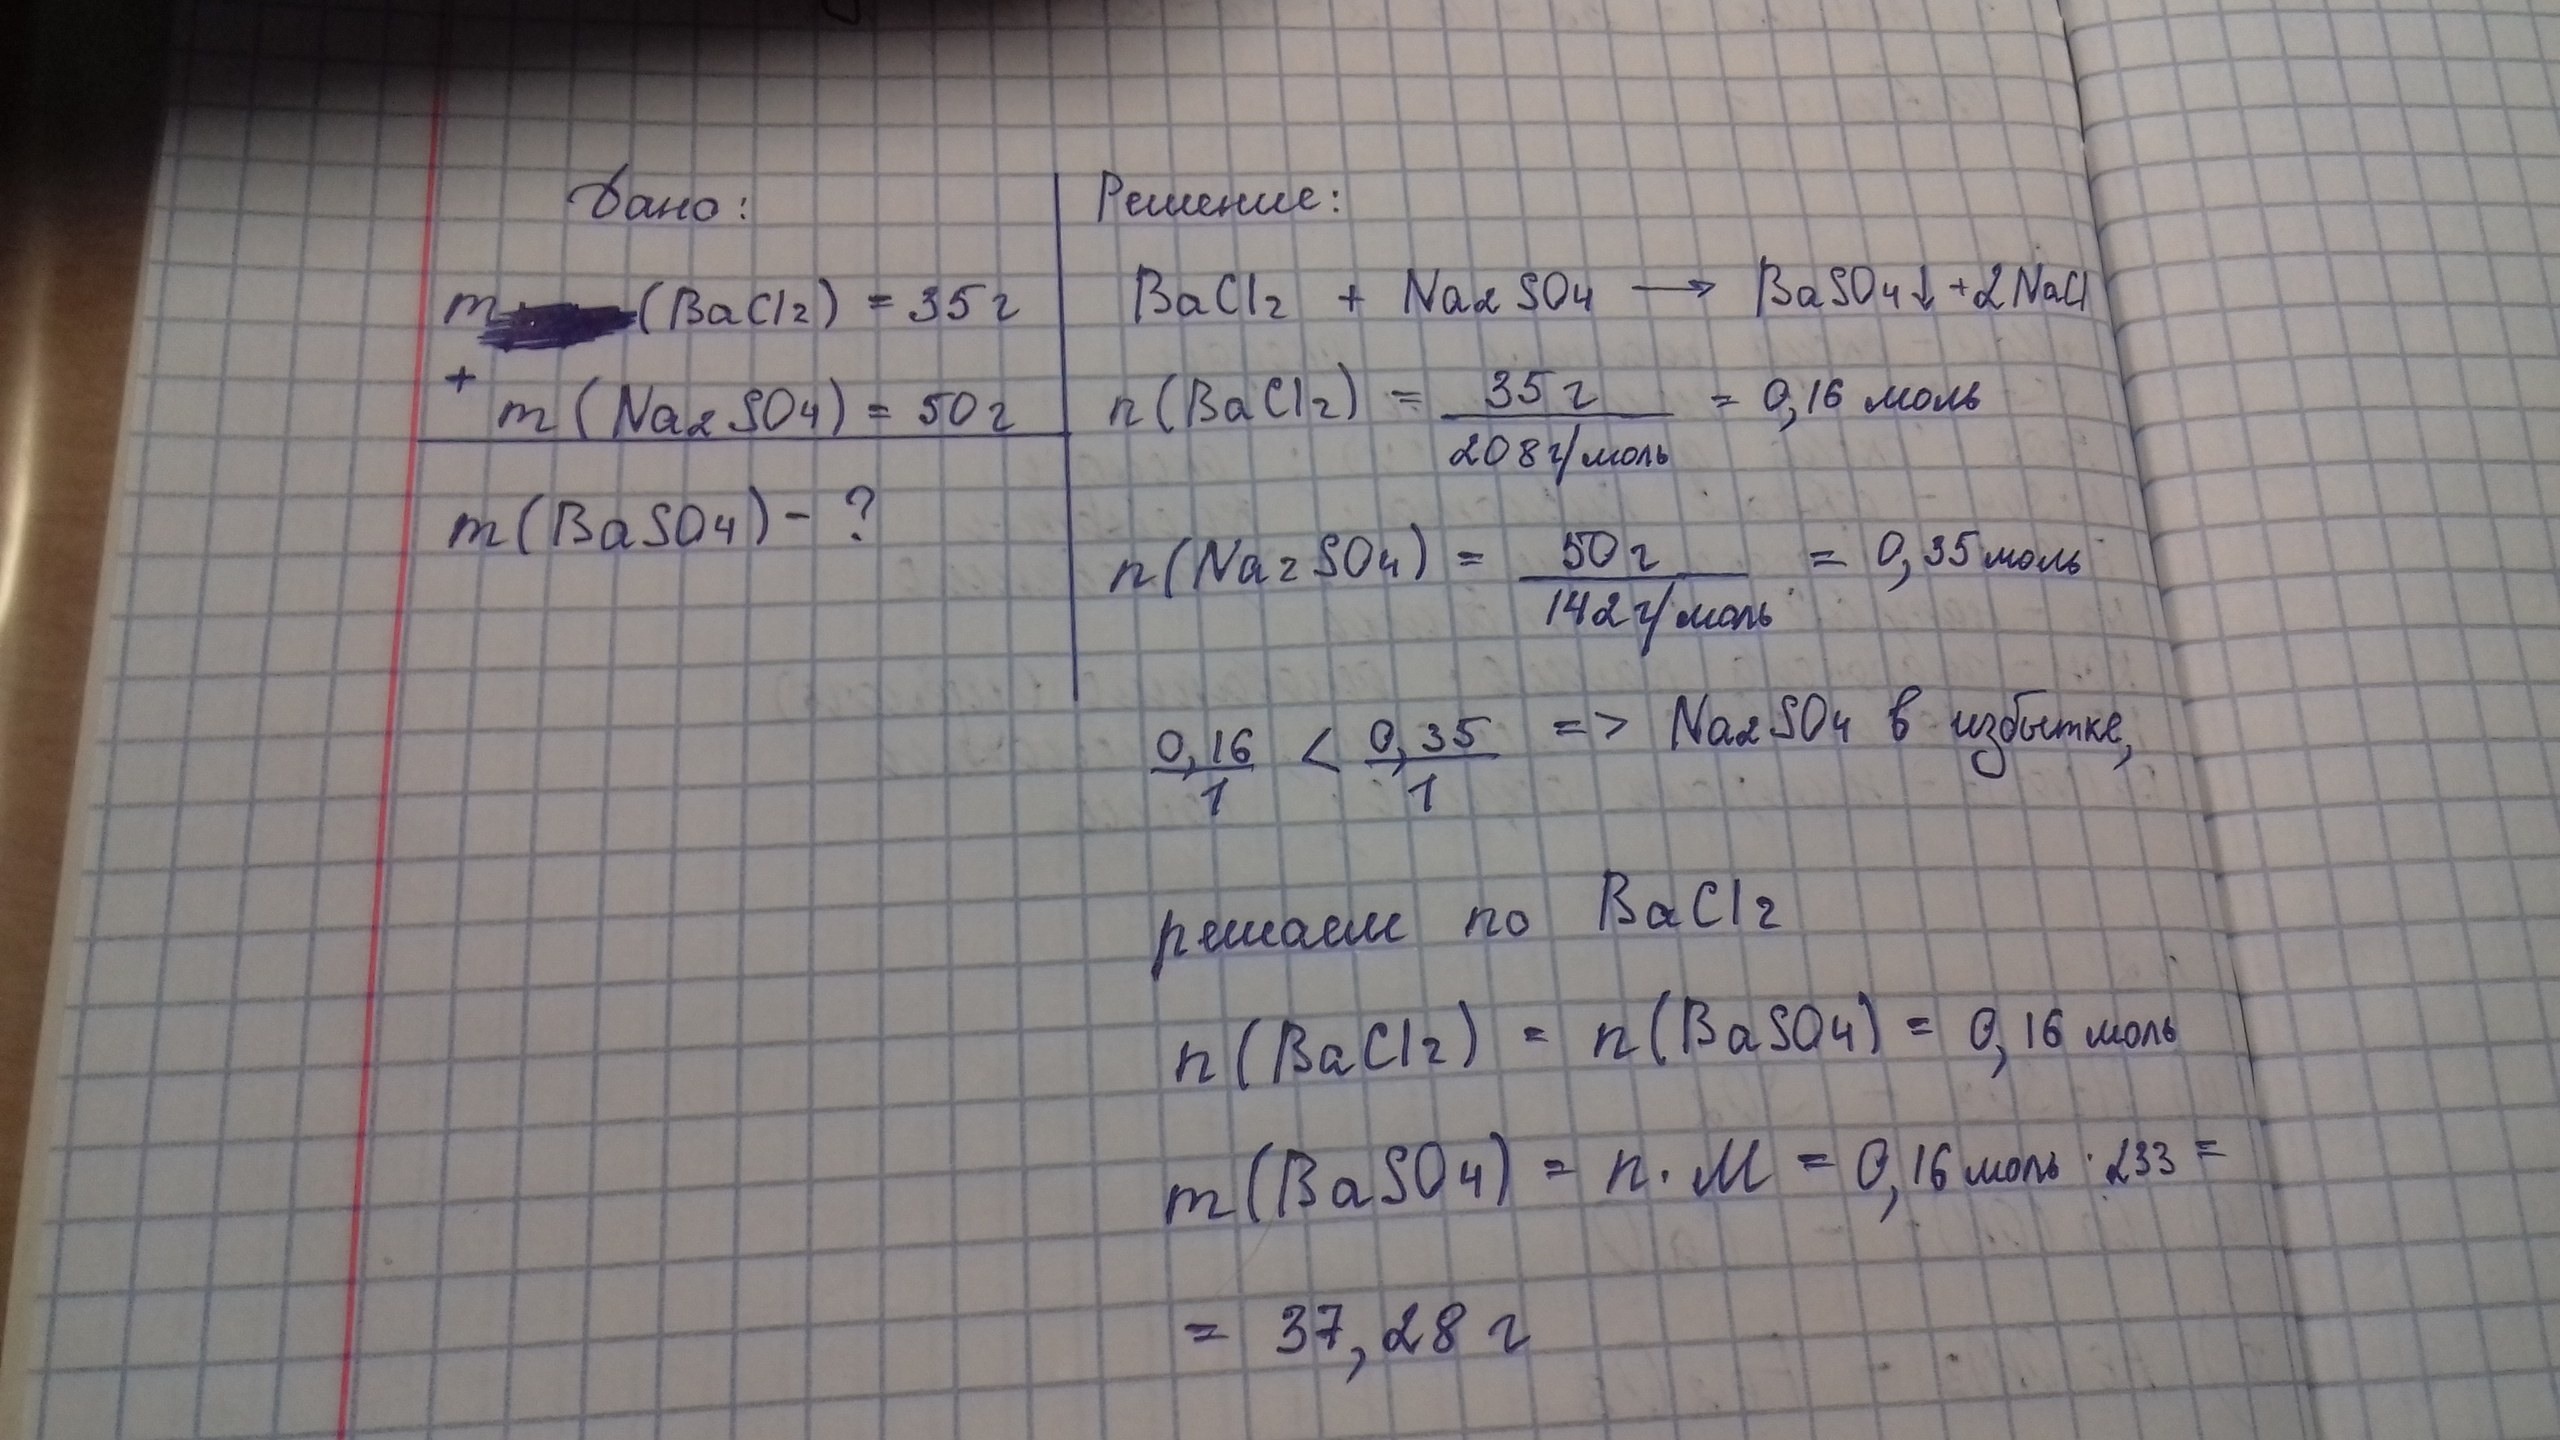 Дано:
m (BaCl2) = 35 г
+ m (Na2SO4) = 50 г
m (BaSO4) - ?
Решение:
BaCl2 + Na2SO4 → BaSO4↓ + 2NaCl
n (BaCl2) = 35 г / 208 г/моль = 0,16 моль
n (Na2SO4) = 50 г / 142 г/моль = 0,35 моль
0,16/1 < 0,35/1 => Na2SO4 в избытке,
решаем по BaCl2
n (BaCl2) = n (BaSO4) = 0,16 моль
m (BaSO4) = n · M = 0,16 моль · 233 =
= 37,28 г